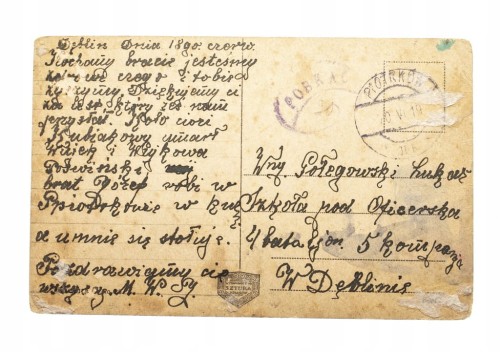 Dęblin Dnia 18go. czerw.
Kochany bracie jesteśmy
zdrowe czego i tobie
życzymy. Dziękujemy ci
za list który żeś nam
przysłał.
Kubiakowy umarł
Wujek i Wujkowa
brat Józef robi w
Piotrkowie w
a u mnie się stołuje.
Pozdrawiamy cię
wszyscy M. W. P.
POBRA
PIOTRKÓW
Wny Połęgowski Łukasz
Szkoła pod Oficerska
4 bataljon. 5 kompanja
W Dęblinie
SZTUKA